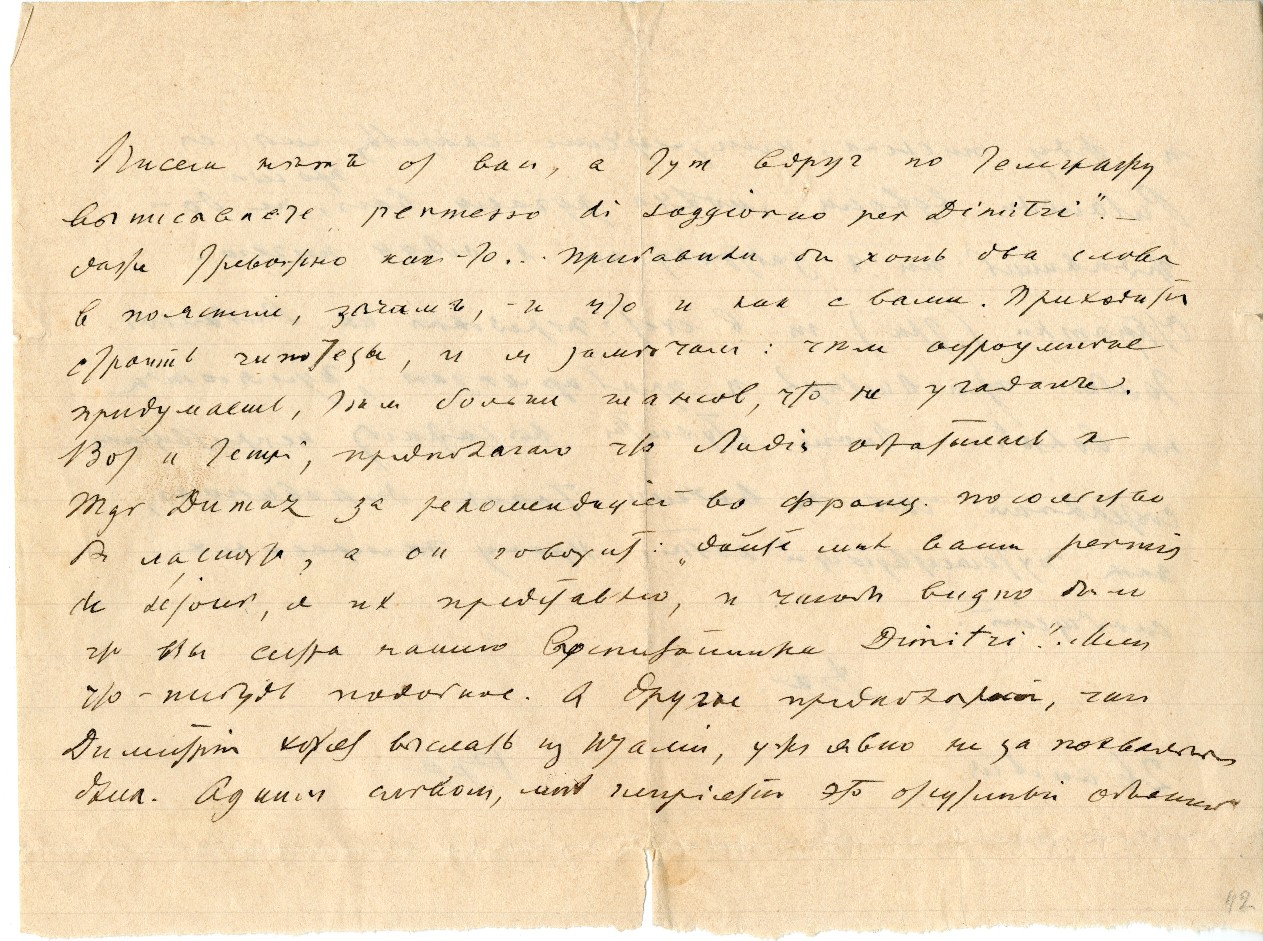 Писемъ нѣтъ от вас, а тут вдруг по телеграфу
выписываете „permesso di soggiorno per Dimitri". —
даже тревожно как-то... прибавили бы хоть два слова
в поясненіе, зачѣмъ, – и что и как с вами. Приходится
строить гипотезы, и я замѣчаю: чѣм остроумнѣе
придумаешь, тѣм больше шансов, что не угадаешь.
Вот и теперь, предполагаю что Лидія обратилась к
Mgr Dumaz за рекомендаціей во франц. посольство
а он говорит: „дайте мнѣ ваши permis
de séjour, я их представлю, и чтобы видно было
что Вы сестра нашего воспитанника Dimitri". Или
что-нибудь подобное. А другое предположеніе, что
Димитрія хотят выслать из Италіи, уж явно не за похвальныя
дѣла. Одним словом, мнѣ непріятен это отсутствіе